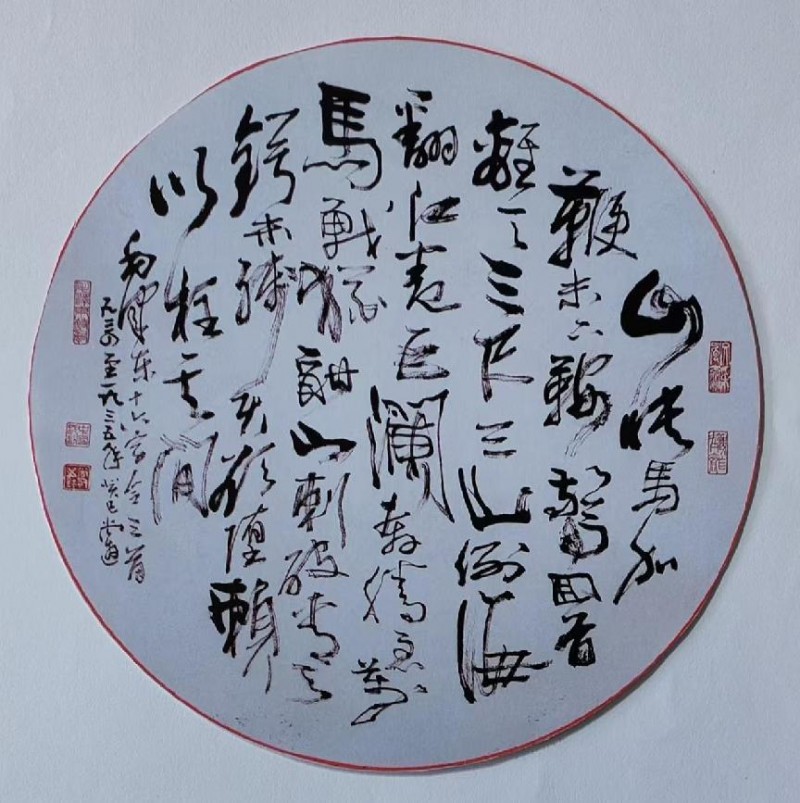 山快馬加
鞭未下鞍驚回首
離天三尺三山倒海
翻江卷巨瀾奔騰急萬
馬戰猶酣山刺破青天
鍔未殘天欲墮賴
以柱其間
毛澤東十六字令三首
一九三四至一九三五年癸巳